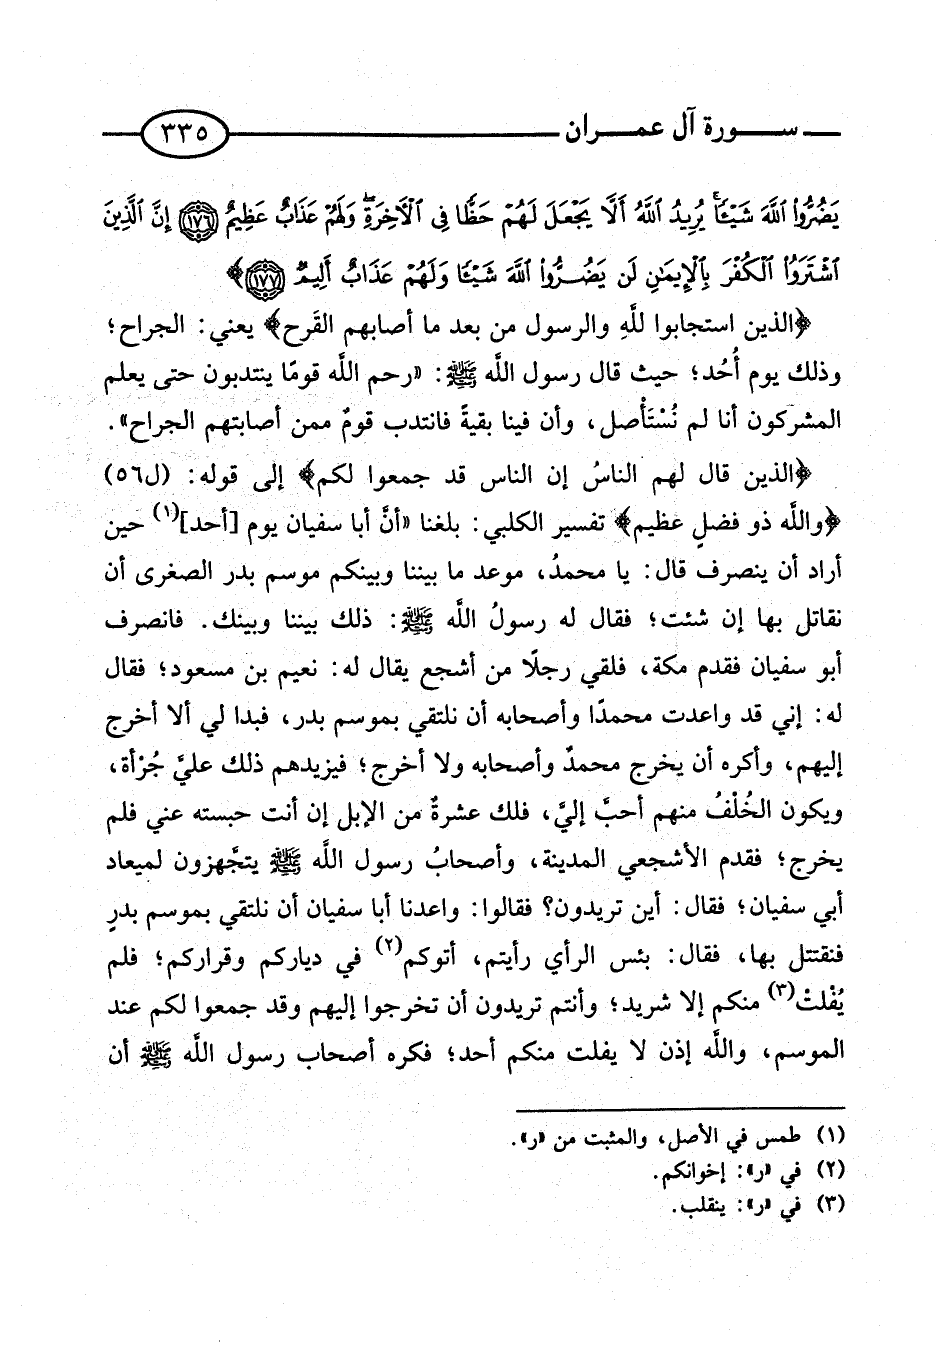 سورة آل عمران ٣٣٥
يَضُرُّوا۟ ٱللَّهَ شَيْـًٔا ۗ يُرِيدُ ٱللَّهُ أَلَّا يَجْعَلَ لَهُمْ حَظًّا فِى ٱلْـَٔاخِرَةِ ۖ وَلَهُمْ عَذَابٌ عَظِيمٌ ﴿١٧٦﴾ إِنَّ ٱلَّذِينَ
ٱشْتَرَوُا۟ ٱلْكُفْرَ بِٱلْإِيمَـٰنِ لَن يَضُرُّوا۟ ٱللَّهَ شَيْـًٔا وَلَهُمْ عَذَابٌ أَلِيمٌ ﴿١٧٧﴾﴾
﴿الذين استجابوا للَّهِ والرسول من بعد ما أصابهم القَرح﴾ يعني: الجراح؛
وذلك يوم أُحُد؛ حيث قال رسول اللَّه ﷺ: «رحم اللَّه قومًا ينتدبون حتى يعلم
المشركون أنا لم نُسْتَأْصل، وأن فينا بقيةً فانتدب قومٌ ممن أصابتهم الجراح».
﴿الذين قال لهم الناسُ إن الناس قد جمعوا لكم﴾ إلى قوله: (ل٥٦)
﴿واللَّه ذو فضلٍ عظيم﴾ تفسير الكلبي: بلغنا «أنَّ أبا سفيان يوم [أحد](١) حين
أراد أن ينصرف قال: يا محمدُ، موعد ما بيننا وبينكم موسم بدر الصغرى أن
نقاتل بها إن شئت؛ فقال له رسولُ اللَّه ﷺ: ذلك بيننا وبينك. فانصرف
أبو سفيان فقدم مكة، فلقي رجلًا من أشجع يقال له: نعيم بن مسعود؛ فقال
له: إني قد واعدت محمدًا وأصحابه أن نلتقي بموسم بدر، فبدا لي ألا أخرج
إليهم، وأكره أن يخرج محمدٌ وأصحابه ولا أخرج؛ فيزيدهم ذلك عليَّ جُرْأة،
ويكون الخُلْفُ منهم أحبَّ إليَّ، فلك عشرةٌ من الإبل إن أنت حبسته عني فلم
يخرج؛ فقدم الأشجعي المدينة، وأصحابُ رسول اللَّه ﷺ يتجَّهزون لميعاد
أبي سفيان؛ فقال: أين تريدون؟ فقالوا: واعدنا أبا سفيان أن نلتقي بموسم بدرٍ
فنقتتل بها، فقال: بئس الرأي رأيتم، أتوكم(٢) في دياركم وقراركم؛ فلم
يُفْلتْ(٣) منكم إلا شريد؛ وأنتم تريدون أن تخرجوا إليهم وقد جمعوا لكم عند
الموسم، واللَّه إذن لا يفلت منكم أحد؛ فكره أصحاب رسول اللَّه ﷺ أن
(١) طمس في الأصل، والمثبت من «ر».
(٢) في «ر»: إخوانكم.
(٣) في «ر»: ينقلب.